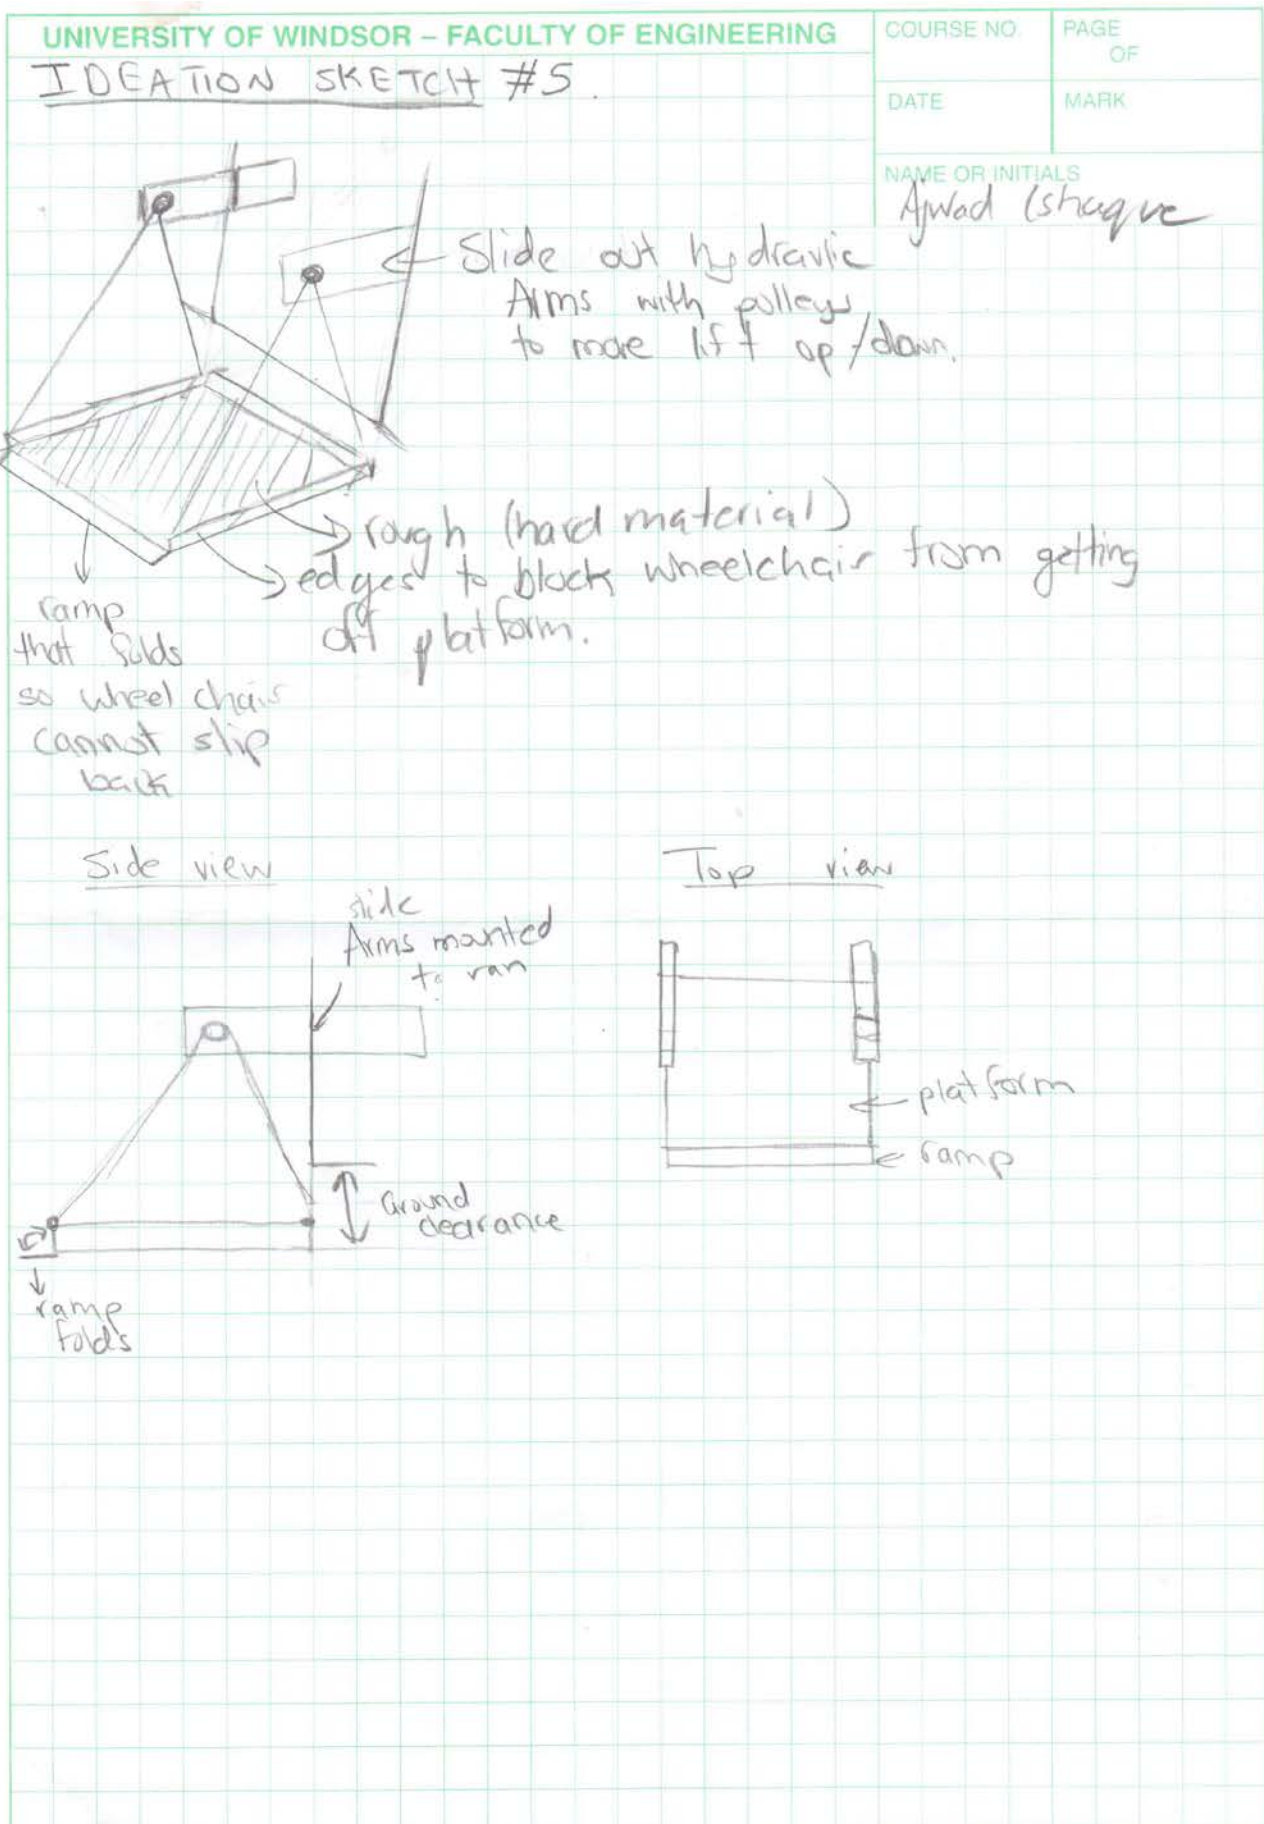 UNIVERSITY OF WINDSOR – FACULTY OF ENGINEERING
COURSE NO.
PAGE
OF
DATE
MARK
NAME OR INITIALS
Ajwad Ishaque
IDEATION SKETCH #5.
Slide out hydraulic
Arms with pulleys
to move lift up/down.
rough (hard material)
edges to block wheelchair from getting
off platform.
ramp
that folds
so wheel chair
cannot slip
back
Side view
slide
Arms mounted
to van
Ground
clearance
ramp
folds
Top view
platform
ramp